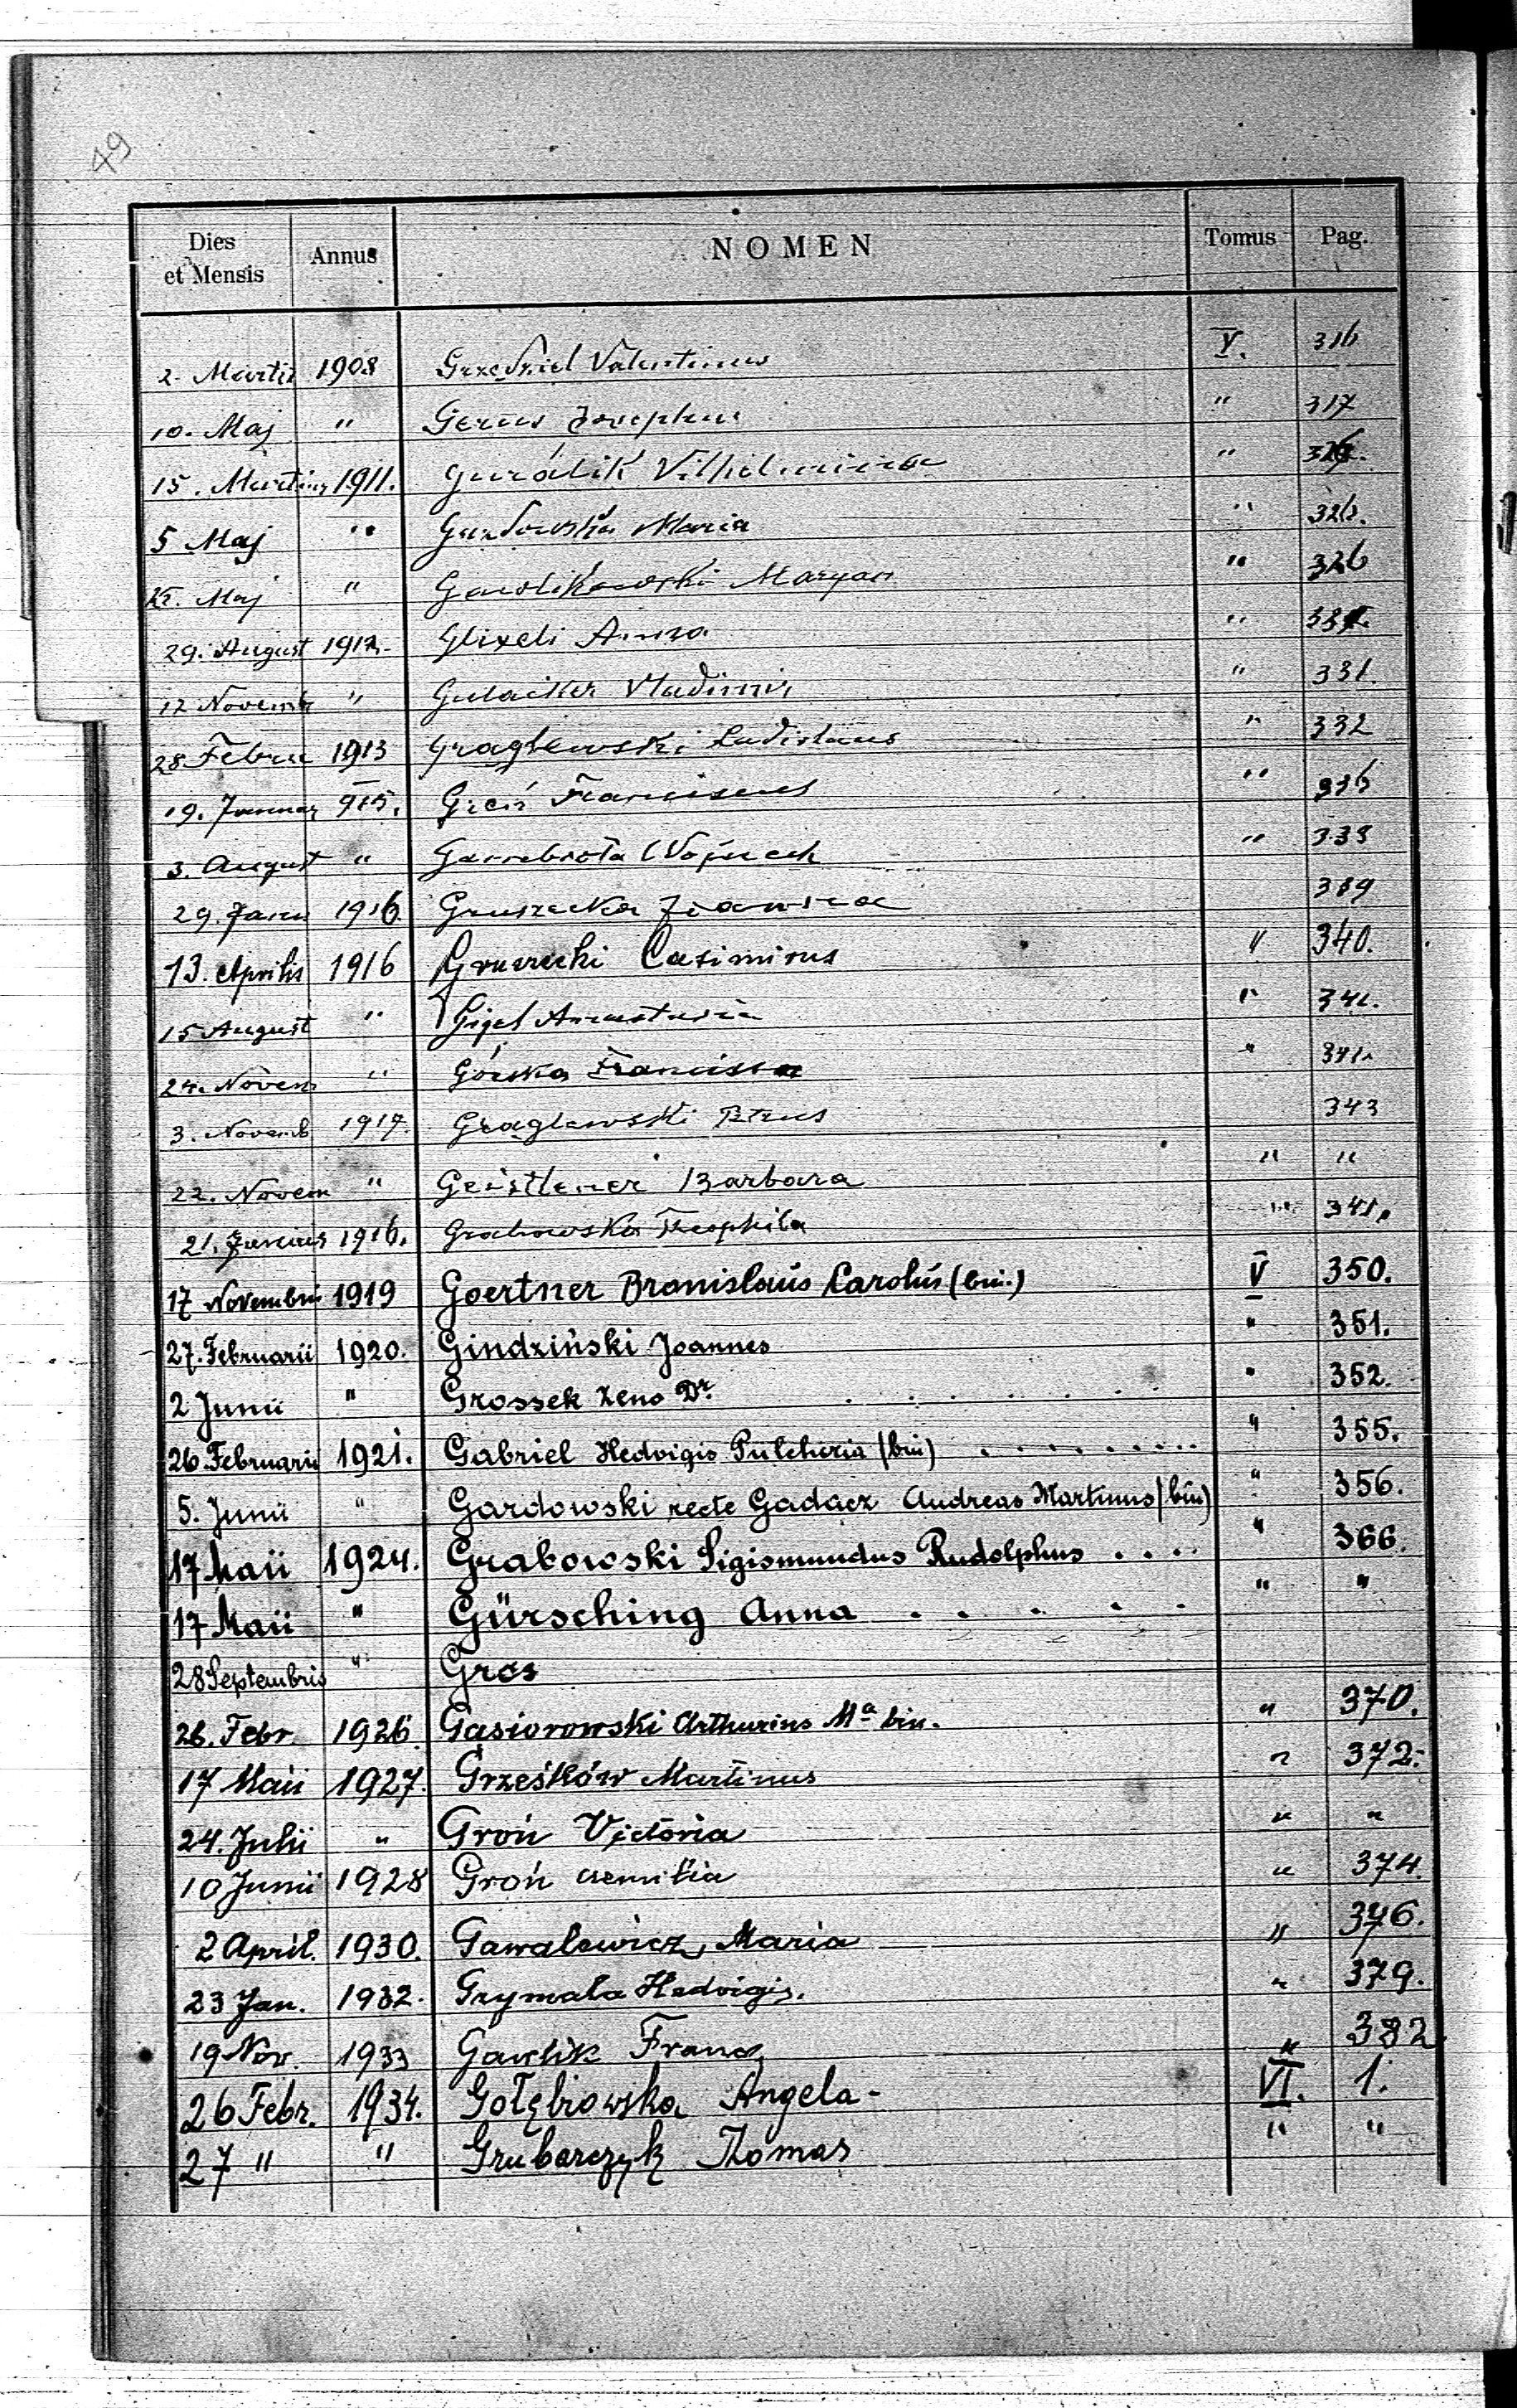 49
Dies et Mensis Annus NOMEN Tomus Pag.
2. Martii 1908 Valentinus V. 316
10. Maj " Josephus " 317
15. Martius 1911. Guralik Vilhelmina "
5 Maj " Maria " 326.
Maj " Gawlikowski Maryan " 326
29. August 1912. Glixeli Anna "
12 Novemb " Vladimir " 331.
28 Febru 1913 Grąglewski Ladislaus " 332
19. Januar 915. Franciscus " 336
3. August " " 338
29. Janu 1916 Gruszecka 339
13. Aprilis 1916 Gruszecki Casimirus " 340.
15 August " Gigel Anastasia " 341.
24. Novem " Górska Francisca " 341.
3. Novemb 1917. Grąglewski Petrus 343
22. Novem " Geistlener Barbara " "
21. 1916. Grabowska Theophila " 341.
17 Novembris 1919 Goertner Bronislaus Carolus (bin.) V 350.
27. Februarii 1920. Gindziński Joannes " 351.
2 Junii " Grossek Zeno Dr. . . . . . . " 352.
26. Februarii 1921. Gabriel Hedvigis Pulcheria (bin) . . . . . . . . " 355.
5. Junii " Gardowski recte Gadacz Andreas Martinus (bin) " 356.
17 Maii 1924. Grabowski Sigismundus Rudolphus . . . . " 366.
17 Maii " Gürsching Anna . . . . . " "
28 Septembris " Gros
26. Febr. 1926. Gąsiorowski Arthurius Ma bin. " 370.
17 Maii 1927. Grześków Martinus " 372.
24. Julii " Groń Victoria " "
10 Junii 1928 Groń Aemilia " 374.
2 April. 1930. Gawalewicz Maria " 376.
23 Jan. 1932. Grymała Hedvigis. " 379.
19 Nov. 1933 Gawlik Franc. " 382
26 Febr. 1934. Gołębiowska Angela - VI. 1.
27 " " Grubarczyk Thomas " "